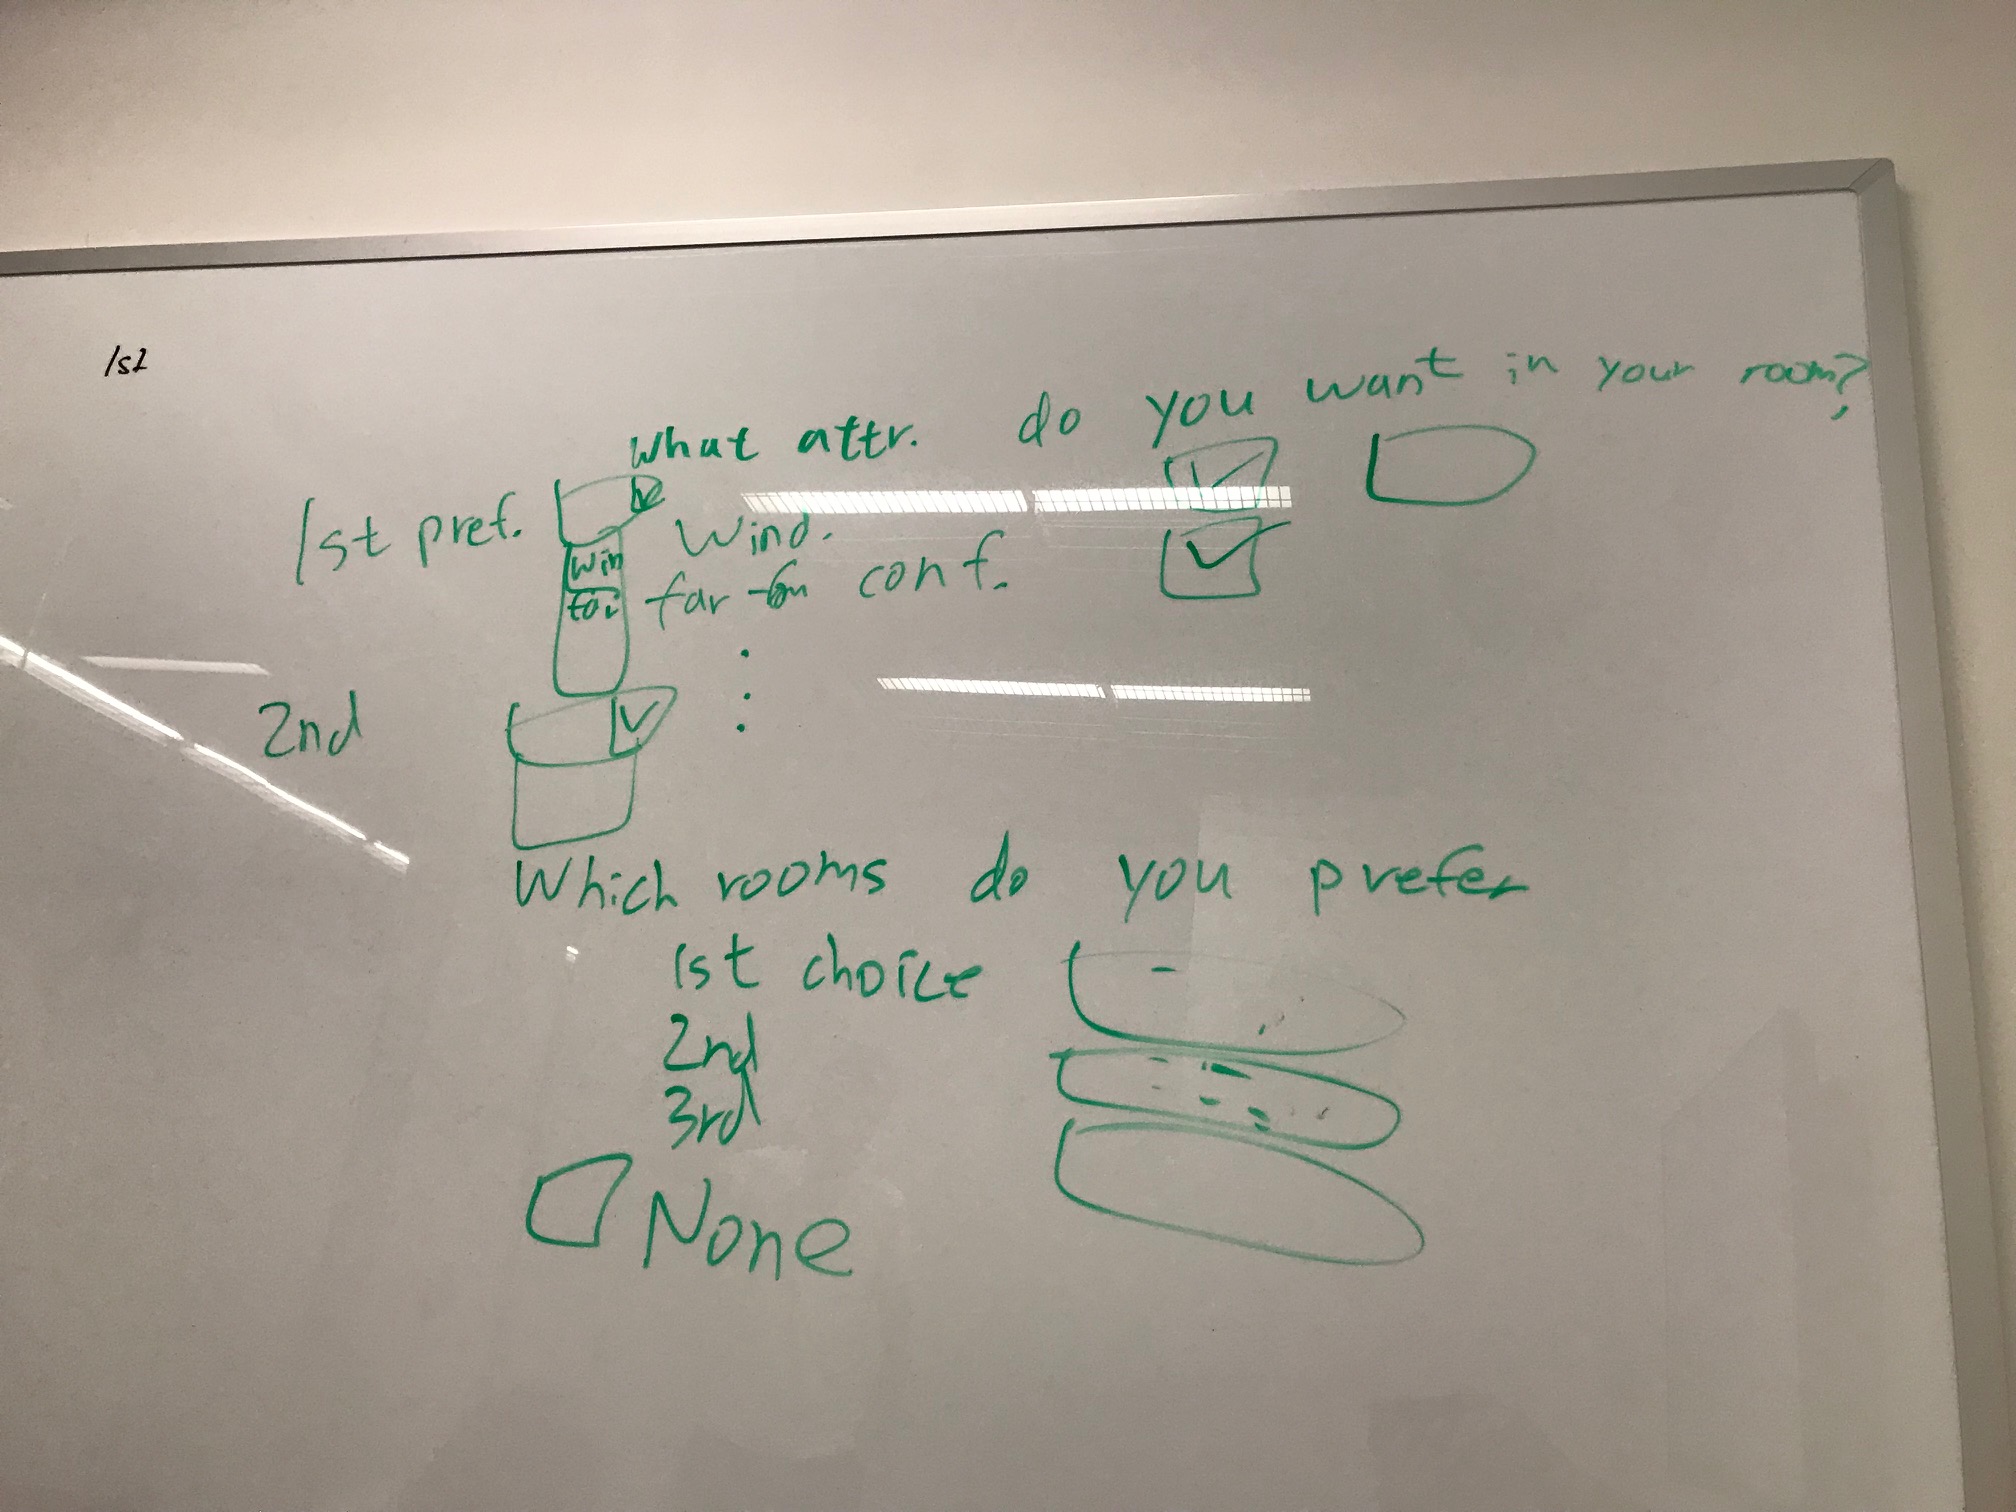 1st
What attr. do you want in your room?
1st pref.
Win
Wind.
far conf.
2nd
Which rooms do you prefer
1st choice
2nd
3rd
None